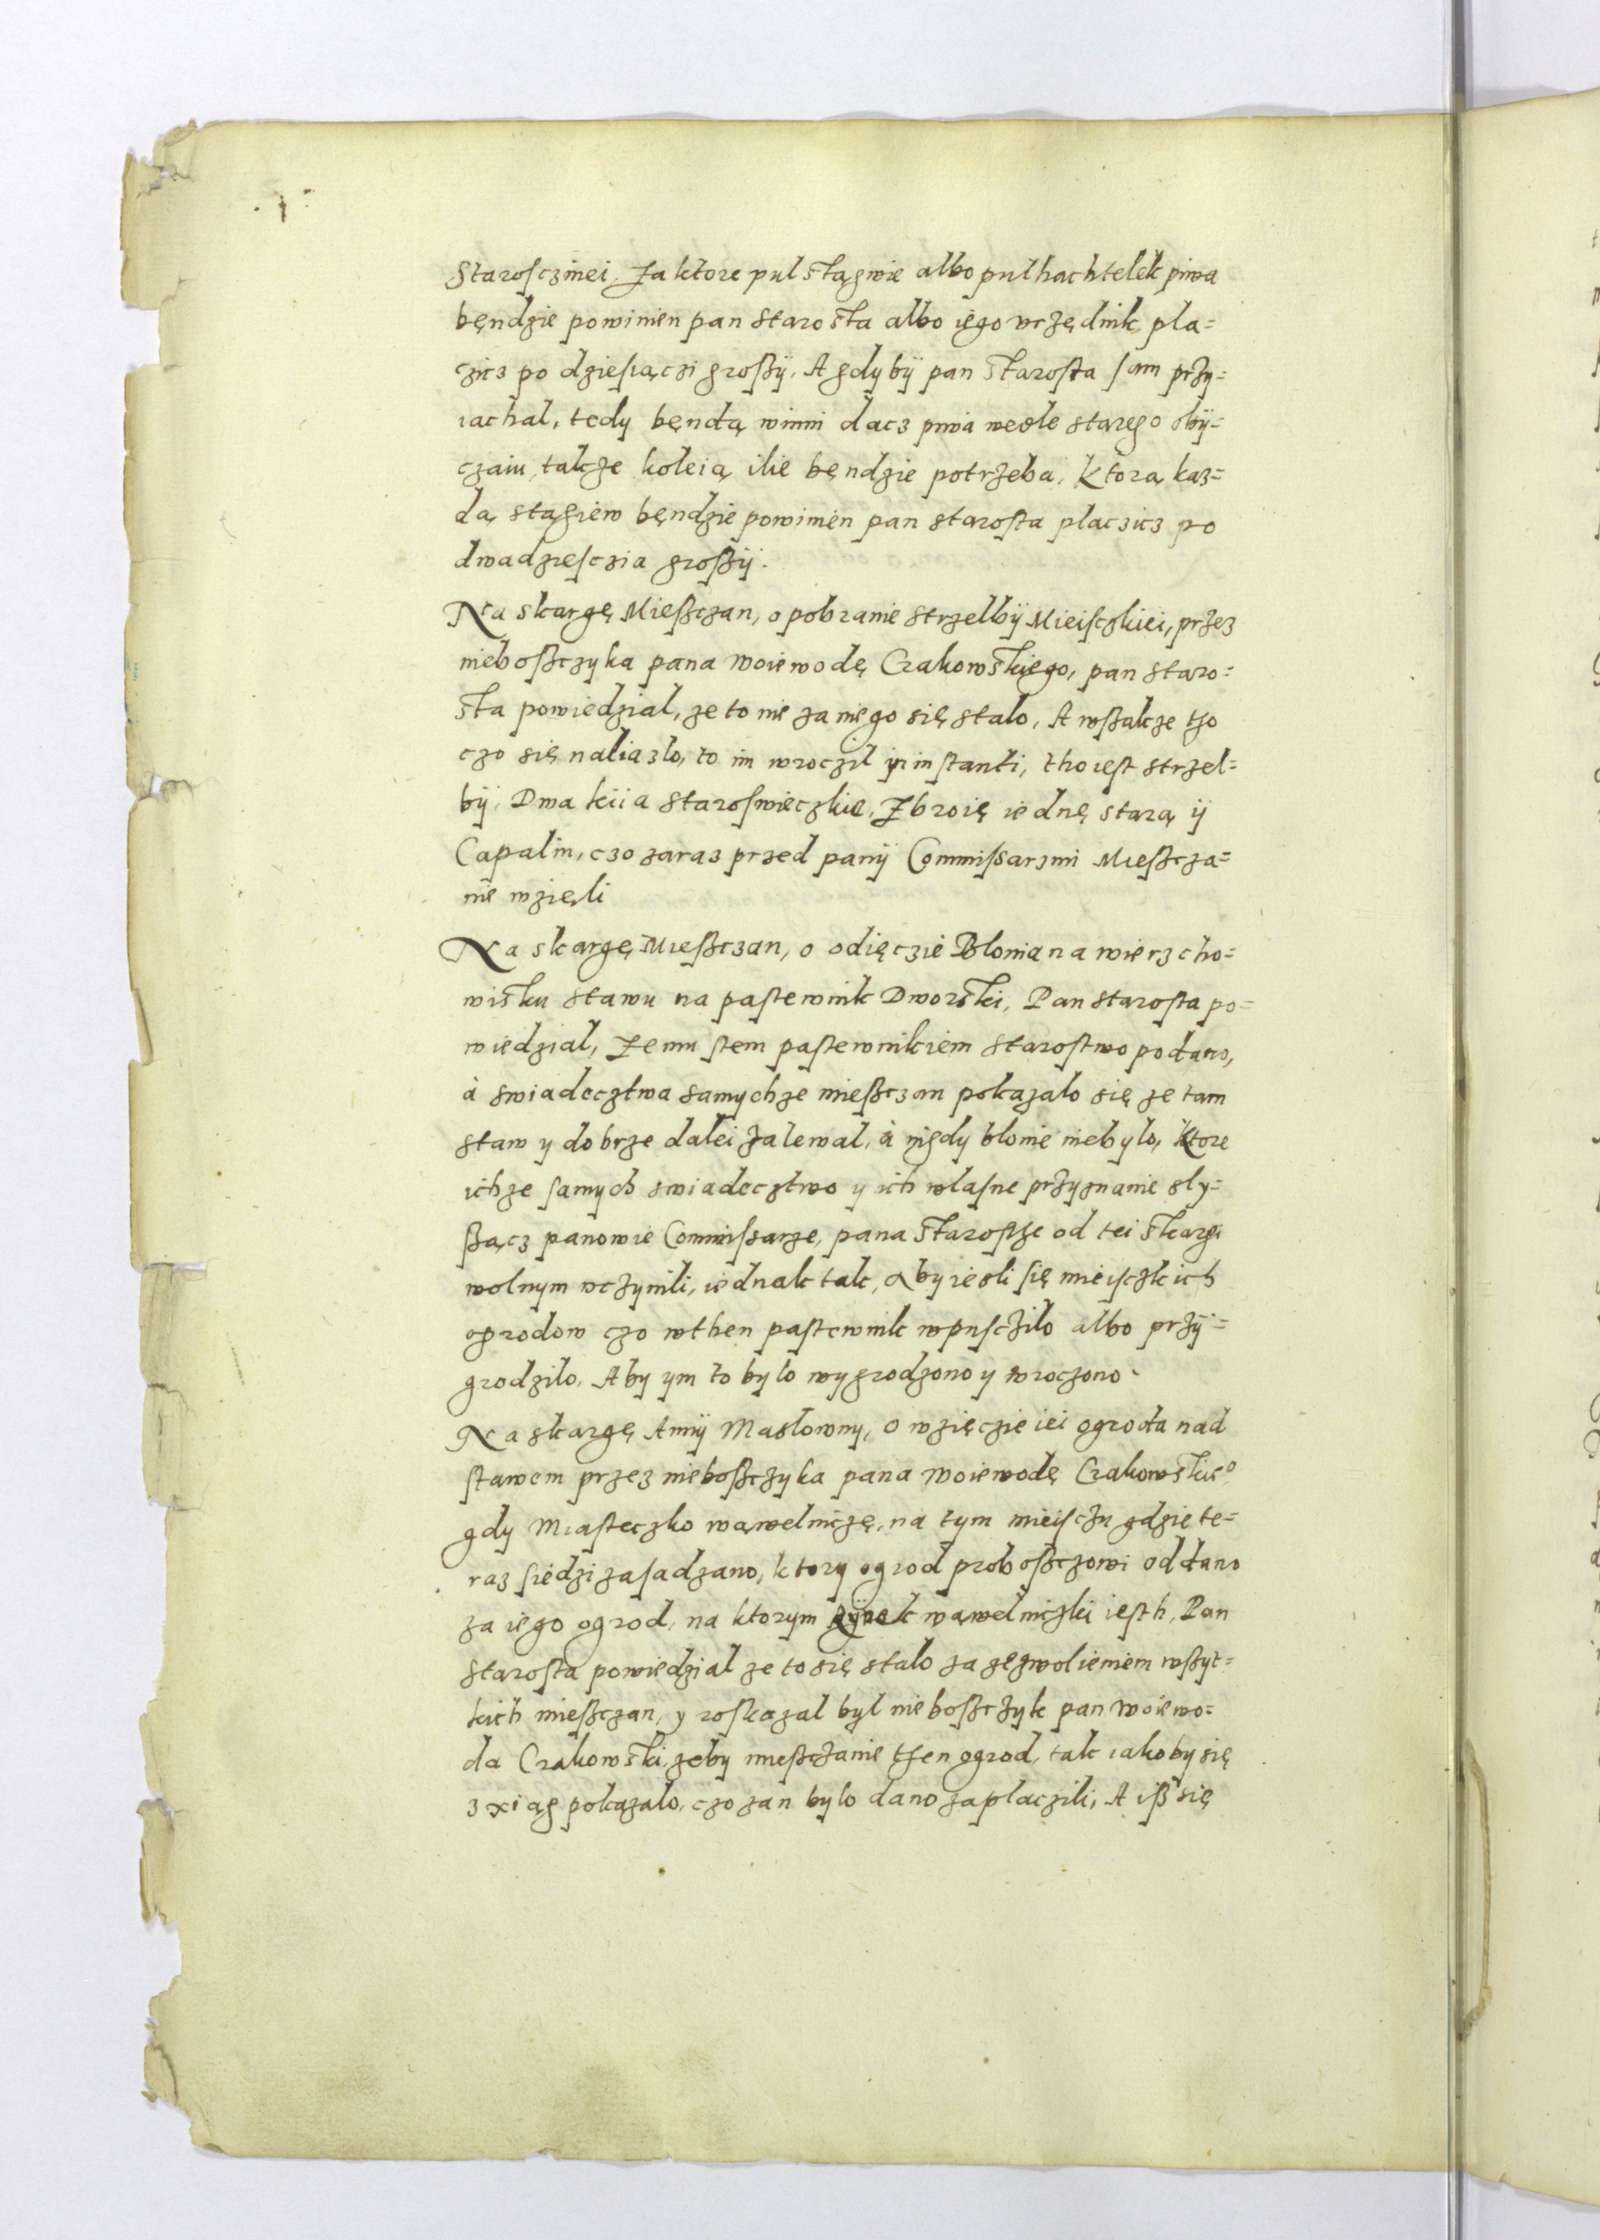 Staroscżinei, Za ktore pul stągwie albo pulhachtelek piwa
bęndzie powinien pan Starosta albo iego vrzędnik, pla=
czicz po dziesiączi groszÿ. A gdy bÿ pan starosta sam przy=
iachal, tedy bęndą winni dacz piwa wedle starego obÿ=
czaiu, takze koleią ilie bęndzie potrzeba, Ktorą kaz=
dą stągiew bęndzie powinien pan starosta placzicz po
dwadziesczia groszÿ.
Na skargę Mieszczan, o pobranie strzelbÿ Mieisczkiei, przez
nieboszczyka pana woiewodę Crakowskiego, pan staro=
sta powiedzial, ze to nie za niego się stalo, A wszakze tho
czo się naliazlo, to im wroczil in instanti, tho iest strzel=
bÿ, Dwa kiia staroswieczkie, Zbroię iednę starą ÿ
Capalin, czo zaraz przed panÿ Commissarzmi Miescza=
nie wzięli
Na skargę Mieszczan, o odięczie Blonia na wierzcho=
wisku stawu na pastewnik Dworski, Pan starosta po=
wiedzial, Ze mu stem pastewnikiem starostwo podano,
à swiadecztwa samychze mieszczan pokazalo się ze tam
staw y dobrze dalei zalewal, à nigdy blonie niebylo, Ktore
ichze samych swiadecztwo y ich wlasne przyznanie sly=
sząncz panowie Commissarze, pana starostze od tei skargi
wolnym vczynili, iednak tak, aby iesli się mieisczkich
ogrodow czo wthen pastewnik wpusczilo albo przÿ=
grodzilo, Aby ym to bylo wygrodzono y wroczono.
Na skargę Annÿ Maslowny, o wzięczie iei ogroda nad
stawem przez nieboszczyka pana woiewodę Crakowskie⁰
gdy Miasteczko wąwelniczę, na tym mieisczu gdzie te=
raz siedzi zasadzano, ktory ogrod proboszczowi oddano
za iego ogrod, na ktorym rÿnek wąwelniczki iesth, Pan
starosta powiedzial ze to się stalo za zezwolieniem wszyt=
kich mieszczan, y roskazal byl nieboszczyk pan woiewo=
da Crakowski, zeby mieszczanie then ogrod, tak iakoby się
z xiąg pokazalo, czo zan bylo dano zaplaczili, A isz się